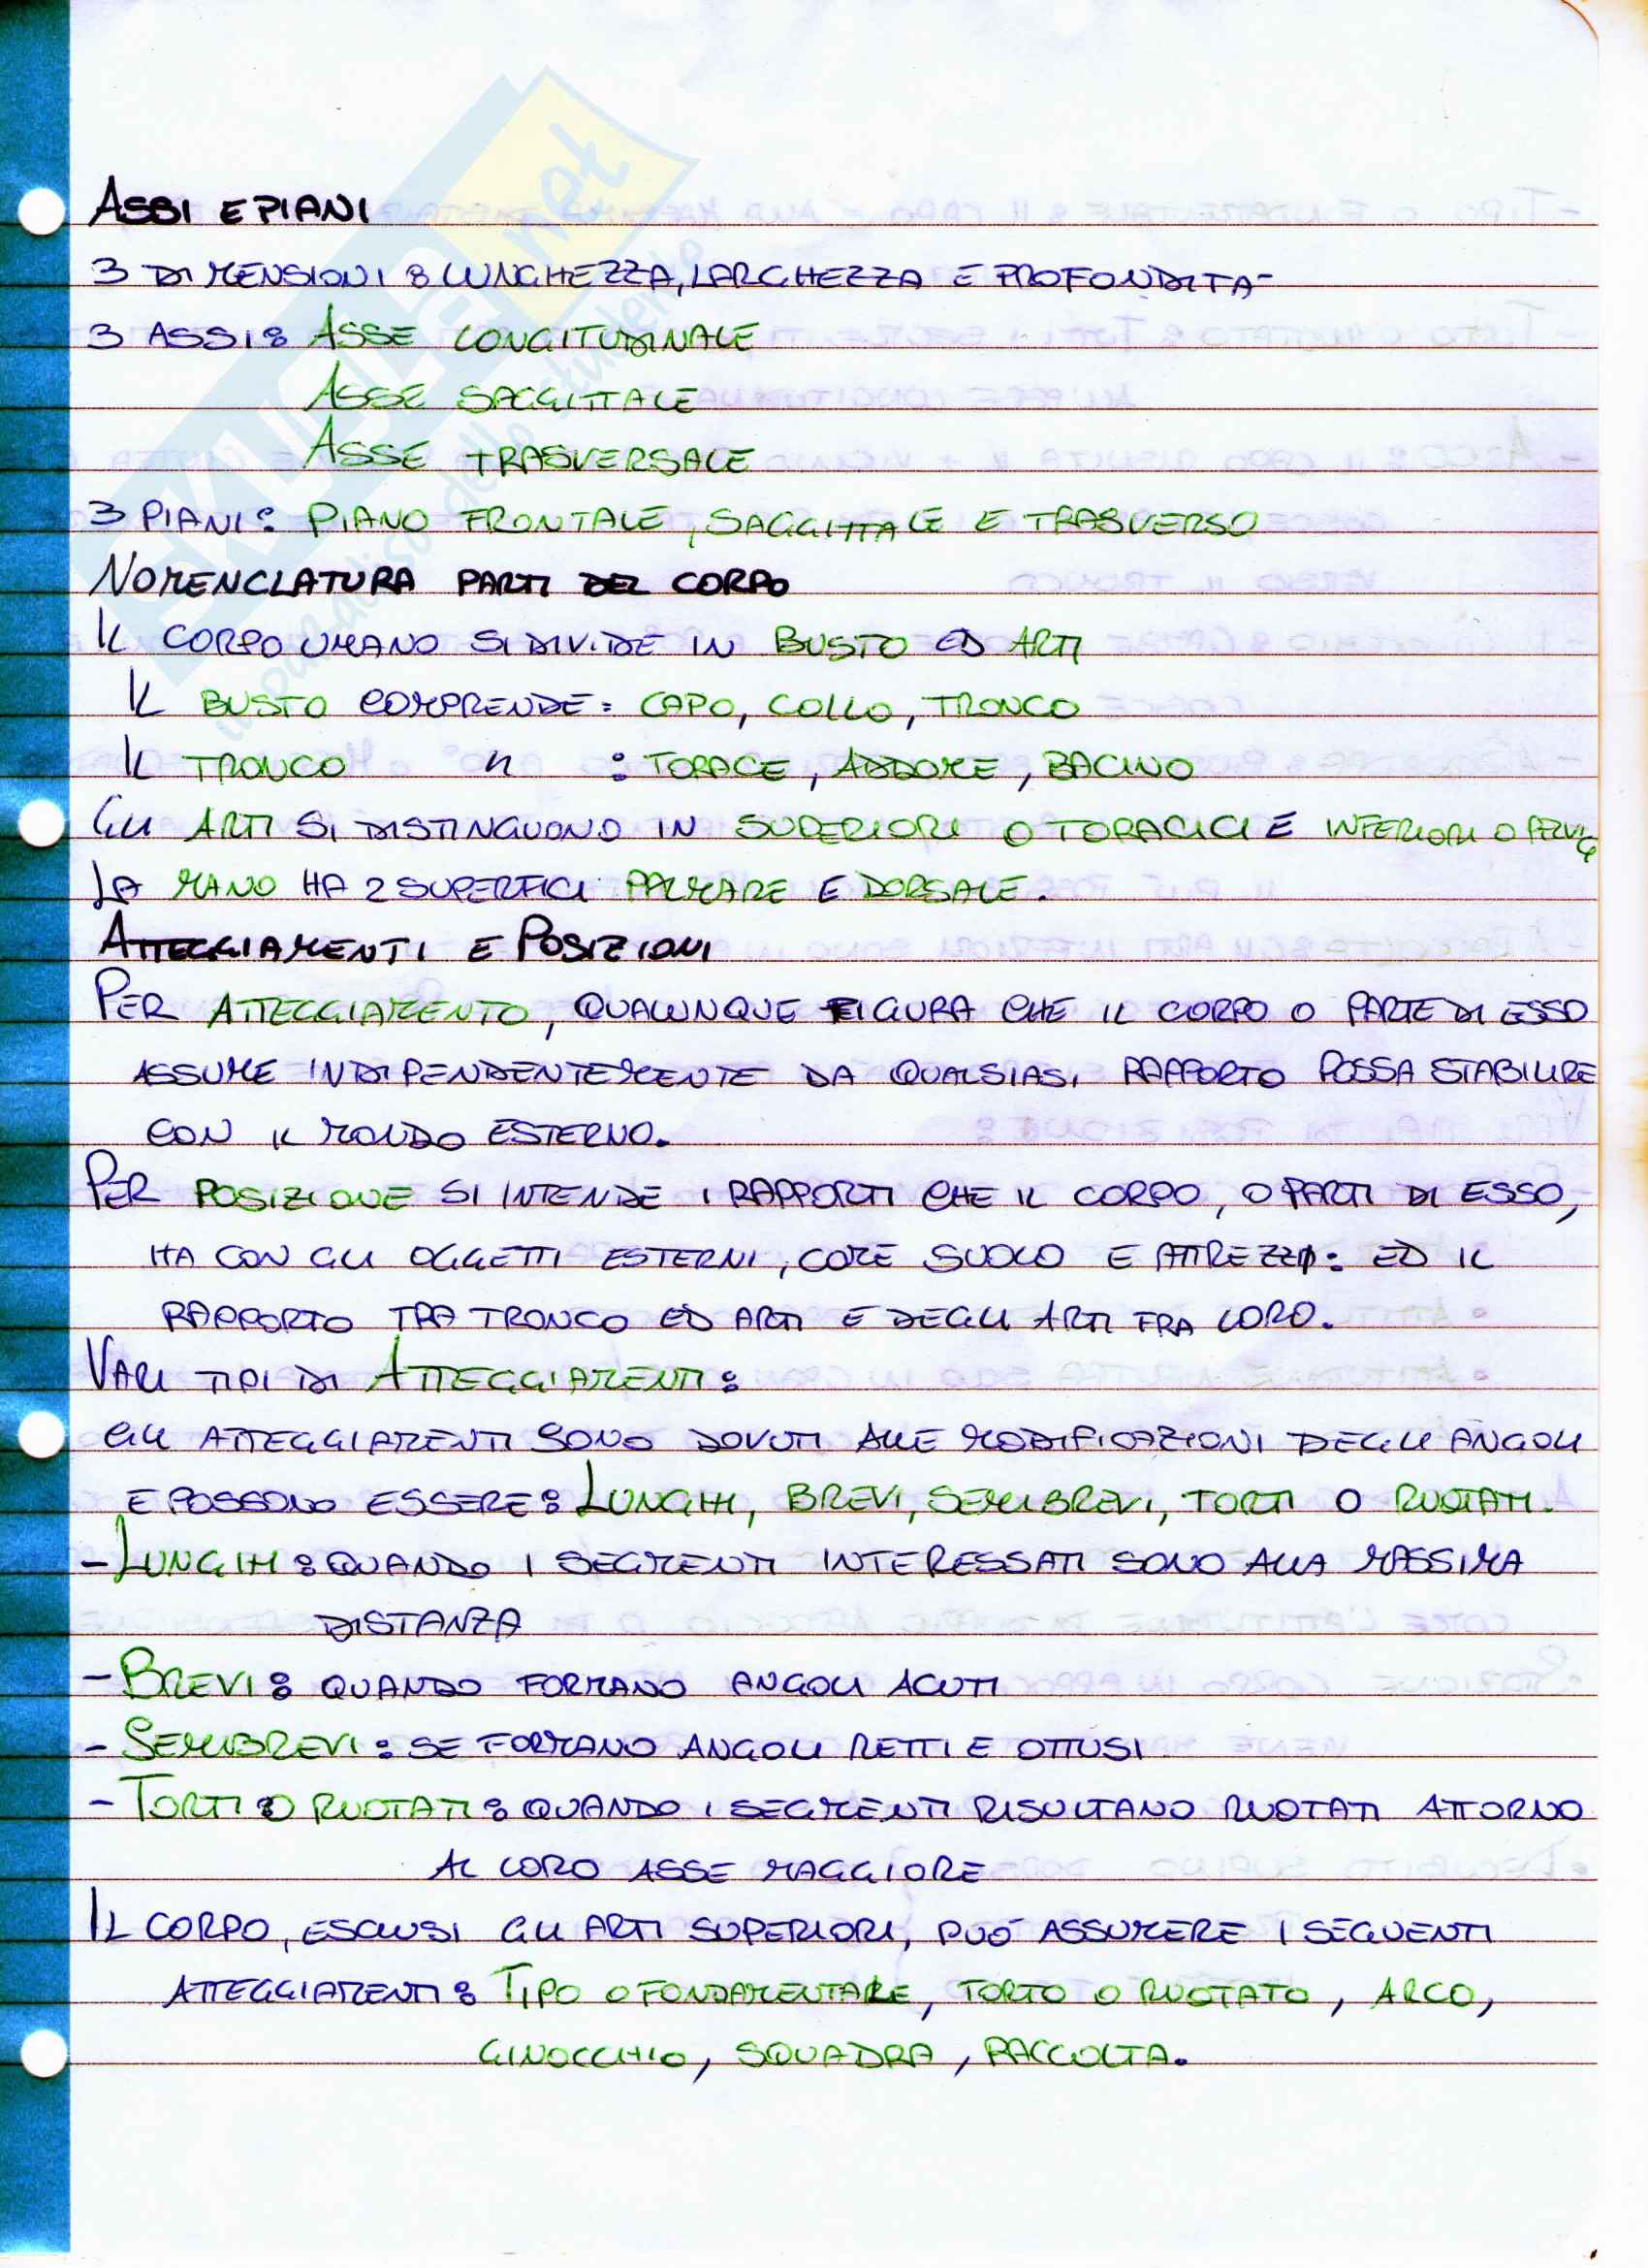 ASSI E PIANI
3 DIMENSIONI: LUNGHEZZA, LARGHEZZA E PROFONDITA-
3 ASSI: ASSE LONGITUDINALE
ASSE SAGGITTALE
ASSE TRASVERSALE
3 PIANI: PIANO FRONTALE, SAGGITTALE E TRASVERSO
NOMENCLATURA PARTI DEL CORPO
IL CORPO UMANO SI DIVIDE IN BUSTO ED ARTI
IL BUSTO COMPRENDE: CAPO, COLLO, TRONCO
IL TRONCO " : TORACE, ADDOME, BACINO
GLI ARTI SI DISTINGUONO IN SUPERIORI O TORACICI E INFERIORI O PELVICI
LA MANO HA 2 SUPERFICI PALMARE E DORSALE.
ATTEGGIAMENTI E POSIZIONI
PER ATTEGGIAMENTO, QUALUNQUE FIGURA CHE IL CORPO O PARTE DI ESSO
ASSUME INDIPENDENTEMENTE DA QUALSIASI RAPPORTO POSSA STABILIRE
CON IL MONDO ESTERNO.
PER POSIZIONE SI INTENDE I RAPPORTI CHE IL CORPO, O PARTI DI ESSO,
HA CON GLI OGGETTI ESTERNI, COME SUOLO E ATTREZZI: ED IL
RAPPORTO TRA TRONCO ED ARTI E DEGLI ARTI FRA LORO.
VARI TIPI DI ATTEGGIAMENTI:
GLI ATTEGGIAMENTI SONO DOVUTI ALLE MODIFICAZIONI DEGLI ANGOLI
E POSSONO ESSERE: LUNGHI, BREVI, SEMIBREVI, TORTI O RUOTATI.
- LUNGHI: QUANDO I SEGMENTI INTERESSATI SONO ALLA MASSIMA
DISTANZA
- BREVI: QUANDO FORMANO ANGOLI ACUTI
- SEMIBREVI: SE FORMANO ANGOLI RETTI E OTTUSI
- TORTI O RUOTATI: QUANDO I SEGMENTI RISULTANO RUOTATI ATTORNO
AL LORO ASSE MAGGIORE
IL CORPO, ESCLUSI GLI ARTI SUPERIORI, PUÒ ASSUMERE I SEGUENTI
ATTEGGIAMENTI: TIPO O FONDAMENTALE, TORTO O RUOTATO, ARCO,
GINOCCHIO, SQUADRA, RACCOLTA.